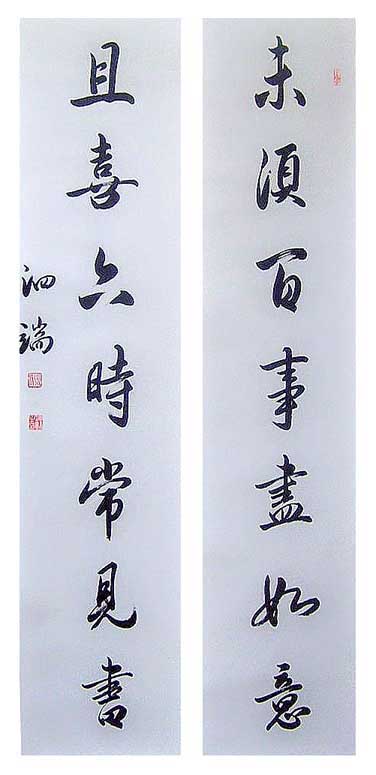 未須百事盡如意
且喜六時常見書
泗端